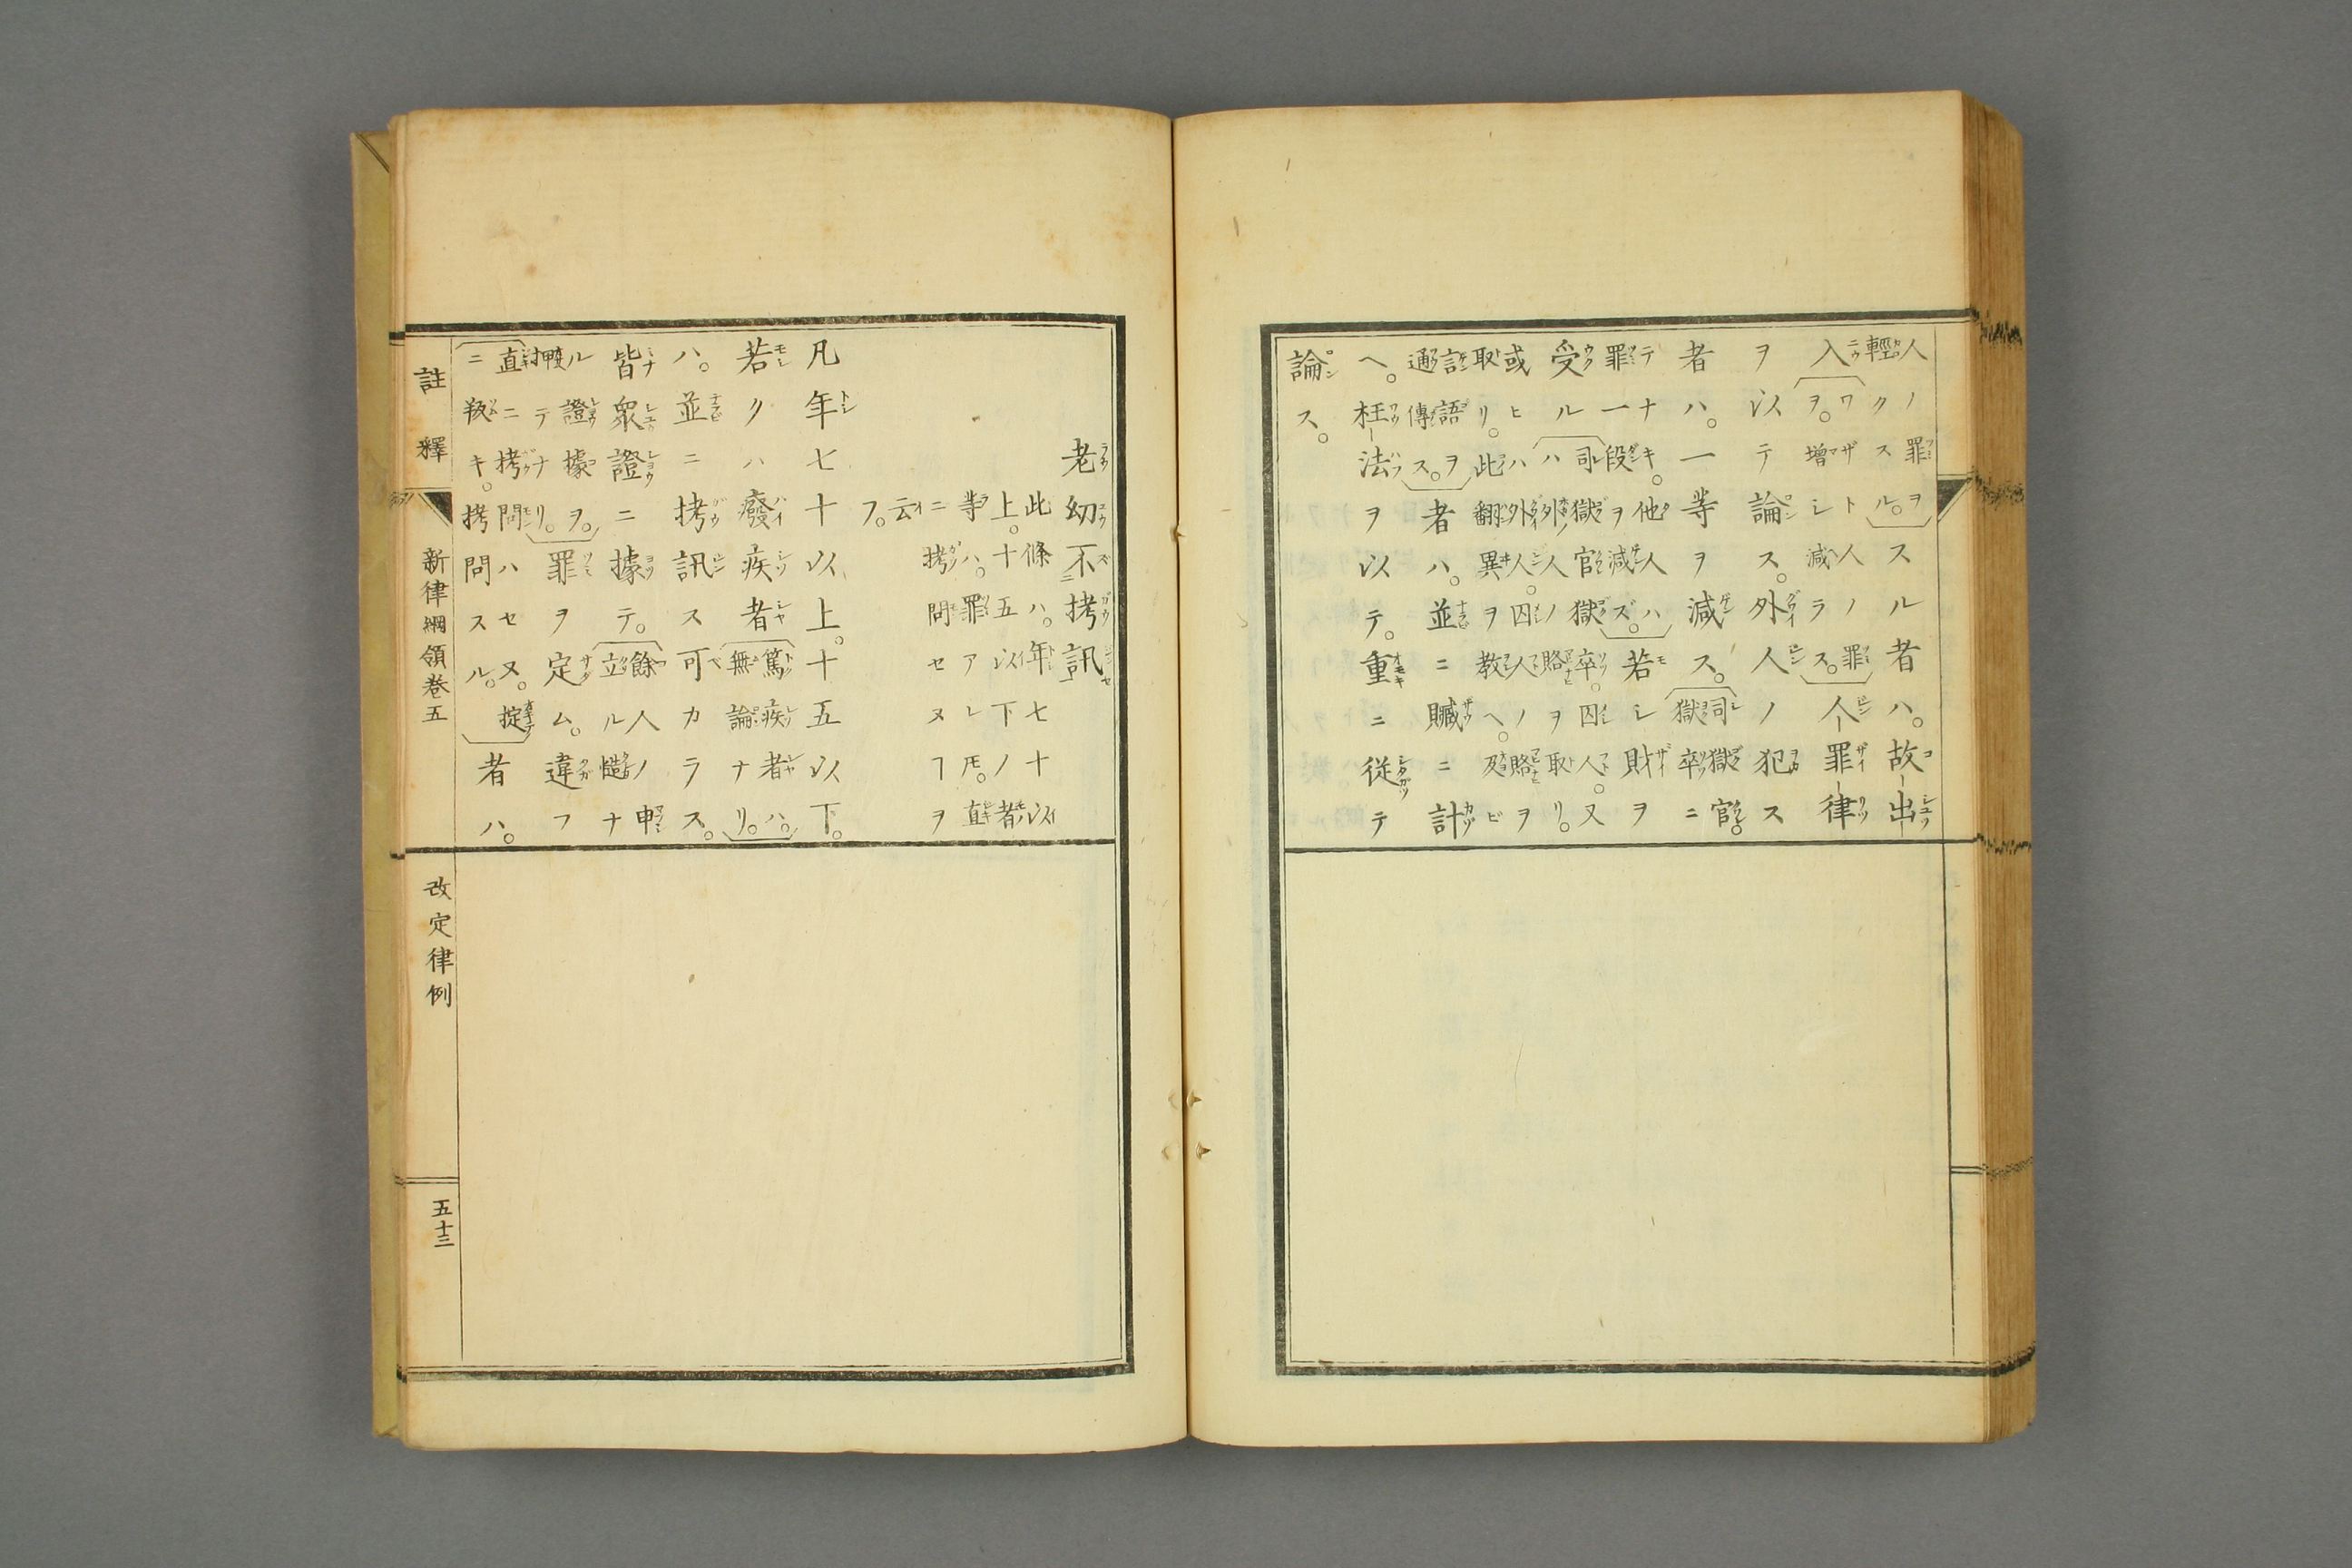 人ノ罪ヲ
輕クスル。
スル者ハ。故出
入
ワザト人ノ罪
ヲ。増シ減ラス。
人罪律
ヲ以テ論ス。外人ノ犯ス
者ハ。一等ヲ減ス。
司獄官。
獄卒ニ
テナキ。他人ハ
罪一段ヲ減ズ。
若シ財ヲ
受ル
司獄官獄卒。囚人。又
ハ外ノ人ノ賂ヲ取リ。
或ヒハ外人。囚人ノ賂ヲ
取リ。此翻異ヲ教ヘ。及ビ
言語ヲ
通傳ス。
者ハ。並ニ贓ニ計
ヘ。枉法ヲ以テ。重ニ従テ
論ス。
老幼不拷訊
此條ハ。年七十以
上。十五以下ノ者
等ハ。罪アレ𪜈。直
ニ拷問セヌヿヲ
云フ。
凡年七十以上。十五以下。
若クハ廢疾者
篤疾者ハ。
無論ナリ。
ハ。並ニ拷訊ス可カラス。
皆衆證ニ據テ。
餘人ノ申
立ル慥ナ
ル證據ヲ。
テナリ。
罪ヲ定ム。違フ
直ニ拷問ハセヌ。掟
ニ叛キ。拷問スル。
者ハ。
註釋
新律綱領卷五
改定律例
五十三